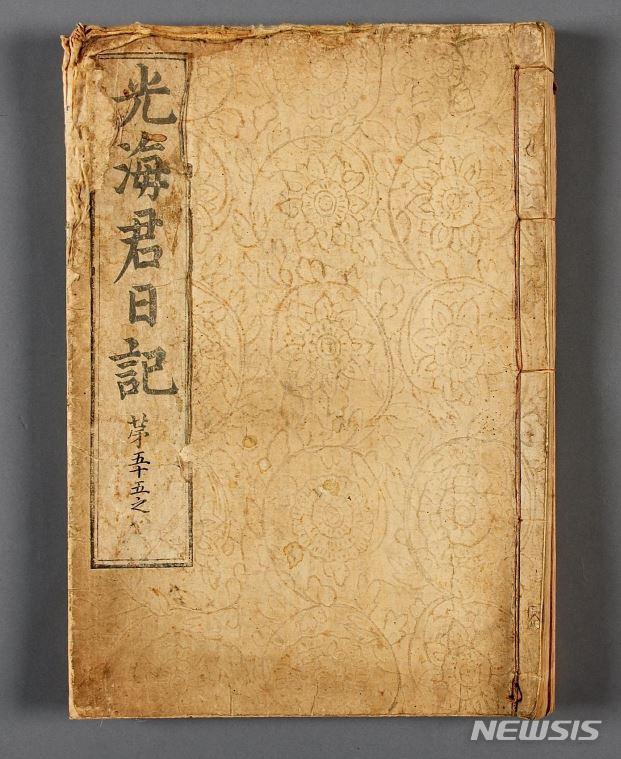 光海君日記
第五十五之
NEWSIS